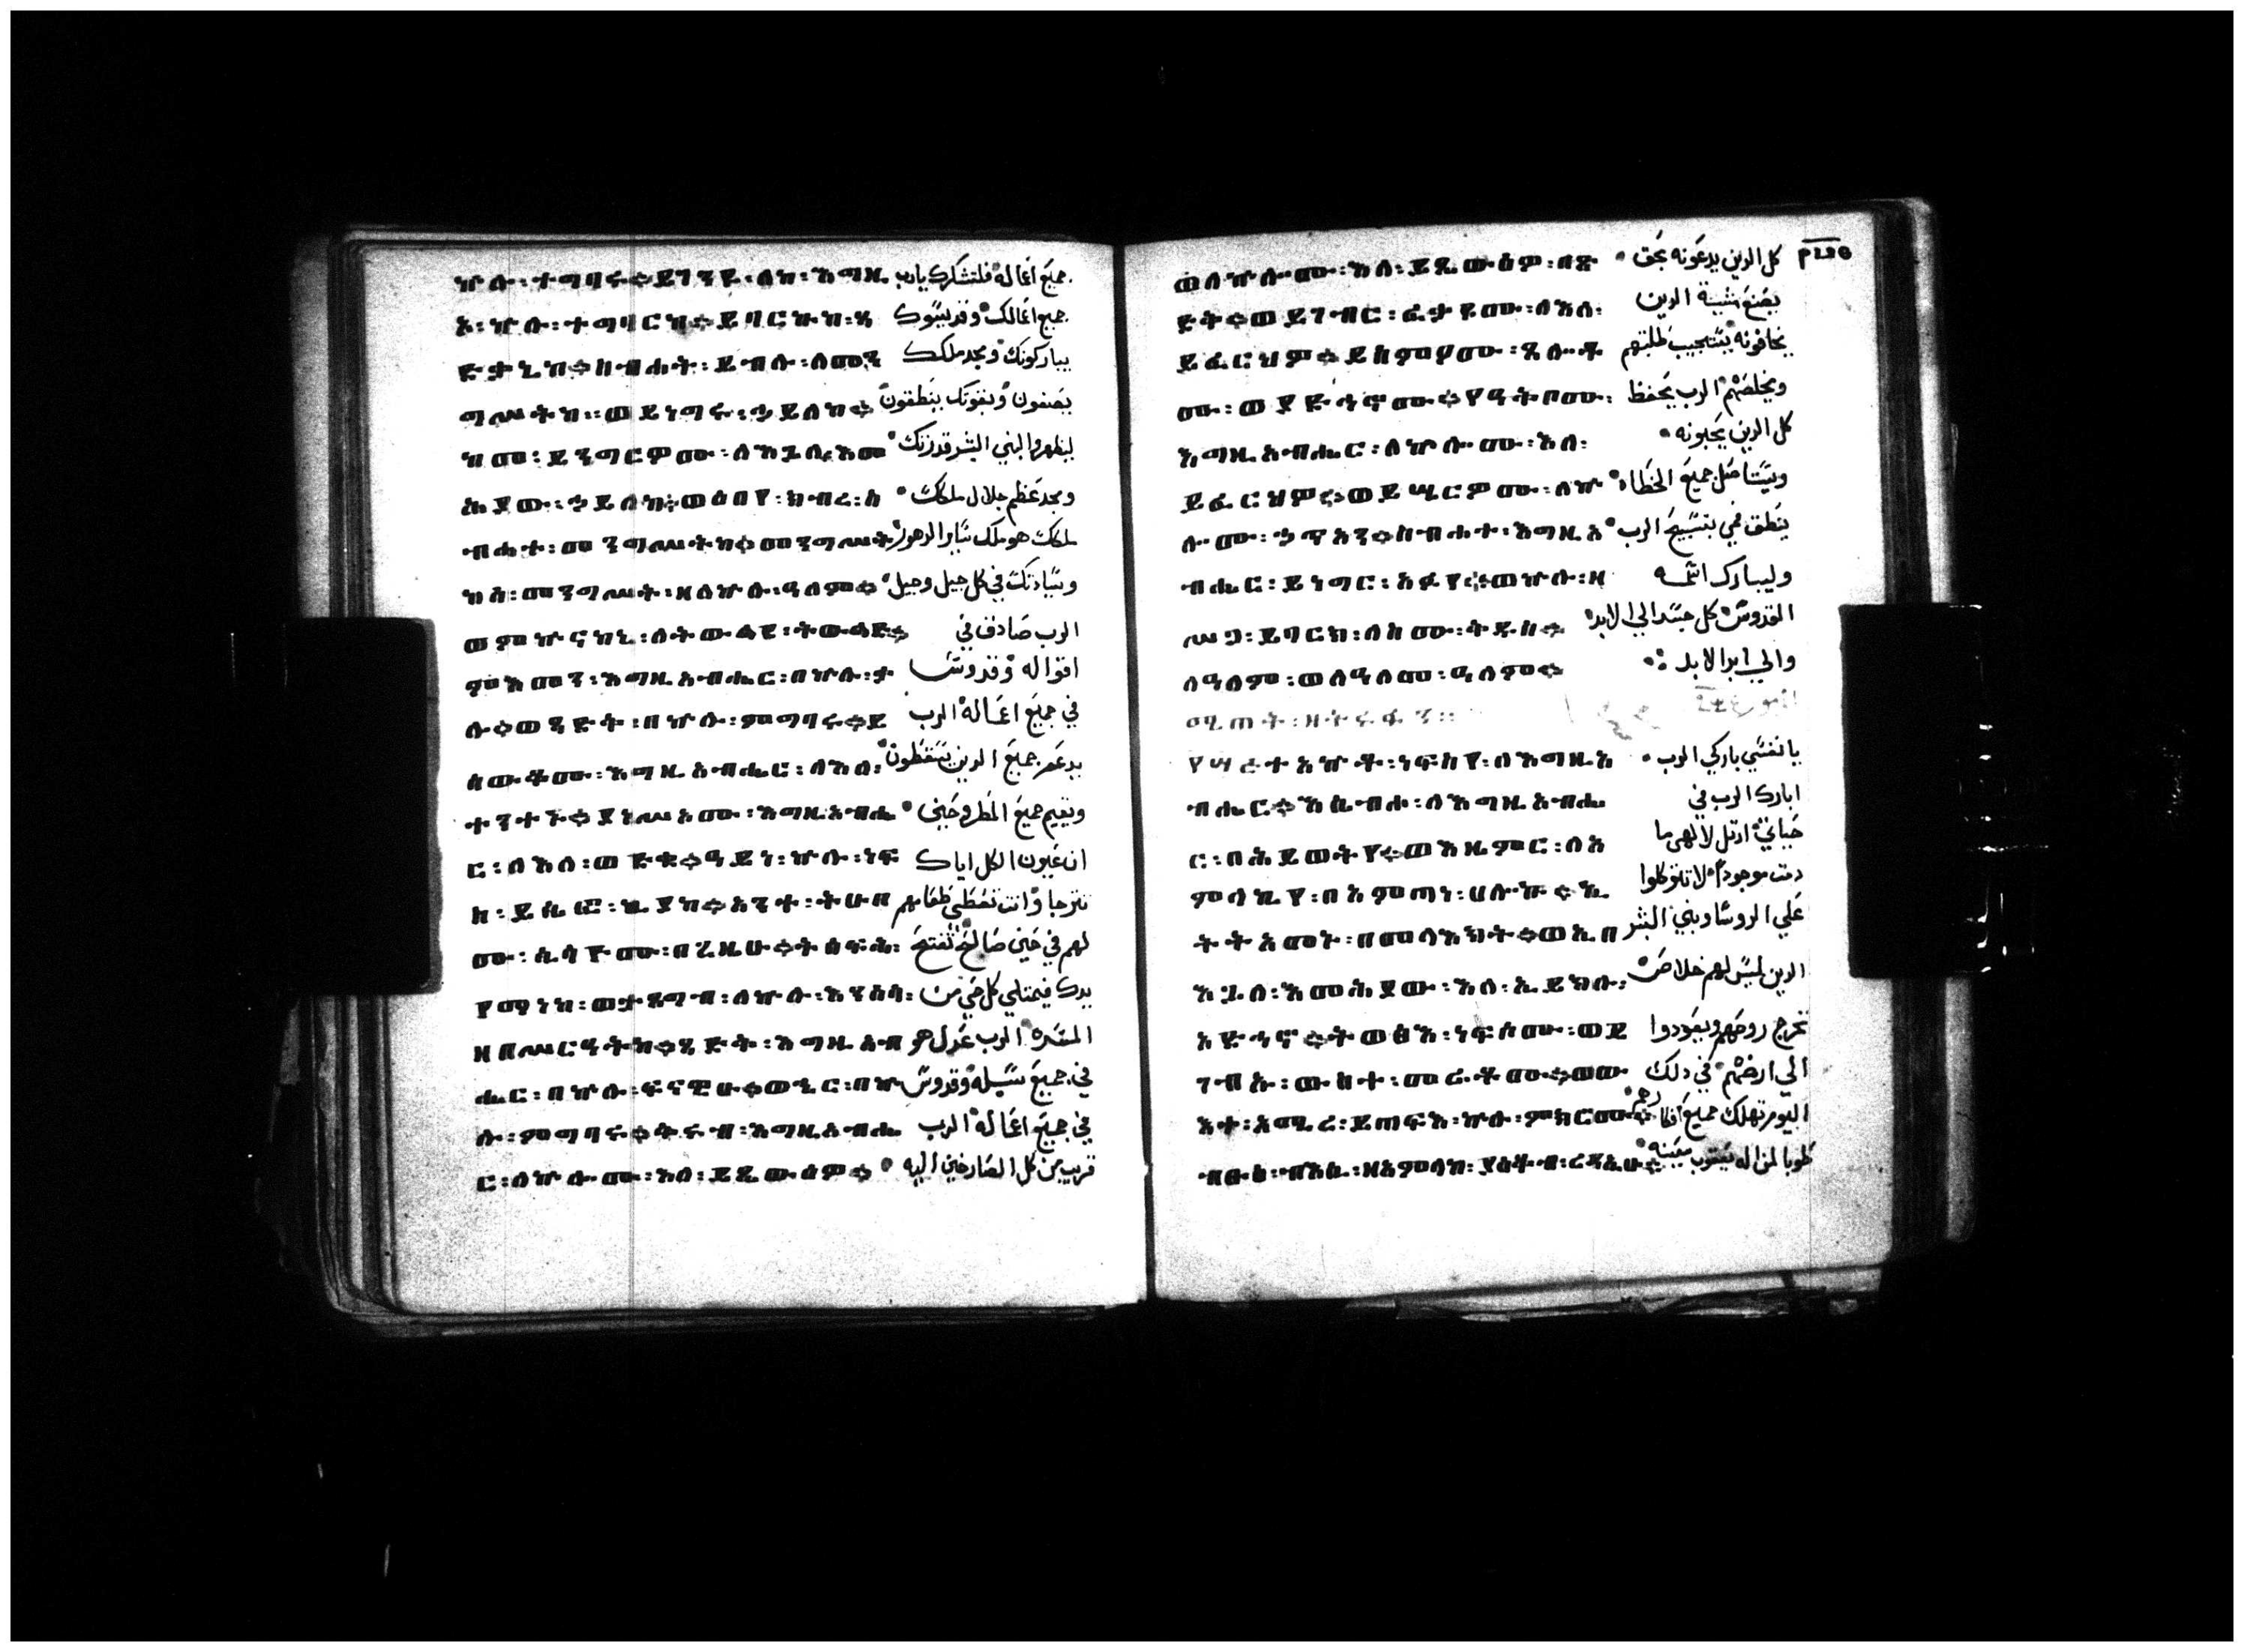 ኵሉ፡ተግባሩ።ይገንዩ፡ለከ፡እግዚ جميع اعماله فلتشكرك يارب
አ፡ኵሉ፡ተግባርከ።ይባርኩከ፡ጻ جميع اعمالك وقديسوك
ድቃኒከ።ስብሐተ፡ይብሉ፡ለመን يباركونك ومجد ملكك
ግሥትከ።ወይነግሩ፡ኃይለከ። يصفون وبقوتك ينطقون
ከመ፡ይንግርዎሙ፡ለእጓለ፡እመ ليظهروا لبني البشر قدرتك
ሕያው፡ኃይለከ።ወዕበየ፡ክብረ፡ስ ومجد عظم جلال ملكك
ብሐተ፡መንግሥትከ።መንግሥት ملكك هو ملك ساير الدهور
ከሰ፡መንግሥት፡ዘለኵሉ፡ዓለም። وسيادتك في كل جيل وجيل
ወምኵናንከኒ፡ለትውልደ፡ትውልድ። الرب صادق في
ምእመን፡እግዚአብሔር፡በኵሉ፡ቃ اقواله وقدوس
ሉ።ወጻድቅ፡በኵሉ፡ምግባሩ።ይ في جميع اعماله الرب
ሰውቆሙ፡እግዚአብሔር፡ለእለ፡ يدعم جميع الدين يسقطون
ተንተኑ።ያነሥኦሙ፡እግዚአብሔ ويقيم جميع المطروحين
ር፡ለእለ፡ወድቁ።ዓይነ፡ኵሉ፡ነፍ ان عيون الكل اياك
ስ፡ይሴፎ፡ኪያከ።አንተ፡ትሁበ تترجا وانت تعطي طعامهم
ሙ፡ሲሳዮሙ፡በጊዜሁ።ትሰፍሕ፡ لهم في حين صالح تفتح
የማነከ፡ወታጸግብ፡ለኵሉ፡እንስሳ፡ يدك فيمتلي كل حي من
ዘበሥርዓትከ።ጻድቅ፡እግዚአብ المسره الرب عدل هو
ሔር፡በኵሉ፡ፍናዊሁ።ወኄር፡በኵ في جميع سبله وقدوس
ሉ፡ምግባሩ።ቅሩብ፡እግዚአብሔ في جميع اعماله الرب
ር፡ለኵሎሙ፡እለ፡ይጼውዕዎ። قريب من كل الصارخين اليه
ወለኵሎሙ፡እለ፡ይጼውዕዎ፡በጽ كل الدين يدعونه بحق
ድቅ።ወይገብር፡ፈቃዶሙ፡ለእለ፡ يصنع مشية الدين
ይፈርህዎ።ይሰምዖሙ፡ጸሎቶ يخافونه يستجيب طلبتهم
ሙ፡ወያድኅኖሙ።የዓቅቦሙ፡ ويخلصهم الرب يحفظ
እግዚአብሔር፡ለኵሎሙ፡እለ፡ كل الدين يحبونه
ይፈርህዎ።ወይሤርዎሙ፡ለኵ ويستاصل جميع الخطاه
ሎሙ፡ኃጥአን።ስብሐተ፡እግዚአ ينطق فمي بتسبيح الرب
ብሔር፡ይነግር፡አፉየ።ወኵሉ፡ዘ وليبارك اسمه
ሥጋ፡ይባርክ፡ለስሙ፡ቅዱስ። القدوس كل جسد الي الابد
ለዓለም፡ወለዓለመ፡ዓለም። والي ابد الابد
የ አኰቶ፡ነፍስየ፡ለእግዚአ يا نفسي باركي الرب
ብሔር።እሴብሖ፡ለእግዚአብሔ ابارك الرب في
ር፡በሕይወትየ።ወእዜምር፡ለአ حياتي ارتل لالهي ما
ምላኪየ፡በአምጣነ፡ሀሎኩ።ኢ دمت موجودا لا تتوكلوا
ትትአመኑ፡በመላእክት።ወኢበ علي الروسا وبني البشر
እጓለ፡እመሕያው፡እለ፡ኢይክሉ፡ الدين ليس لهم خلاص
አድኅኖ።ትወፅእ፡ነፍሶሙ፡ወይ تخرج روحهم ويعودوا
ገብኡ፡ውስተ፡መሬቶሙ።ወው الي ارضهم في دلك
እተ፡አሚረ፡ይጠፍእ፡ኵሉ፡ምክርሙ። اليوم تهلك جميع افكارهم
ብፁዕ፡ብእሲ፡ዘአምላከ፡ያዕቆብ፡ረዳኢሁ። طوبا لمن اله يعقوب معينه